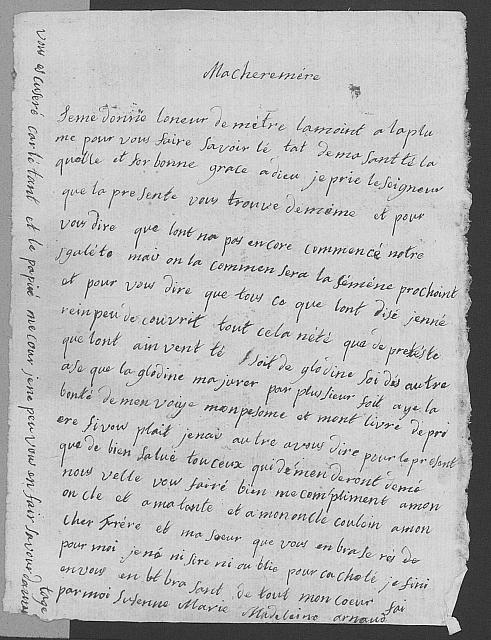 Macheremére
Jeme donne loneur de metre lamoint a la plu
me pour vous faire savoir lé tat de ma Santté la
quelle et for bonne grace a dieu je prie le Seigneur
que la presente vous trouve de méme et pour
vous dire que lont na pas encore commencé notre
galéto mais on la commensera la seméne prochoint
et pour vous dire que tous ce que lont dise jenné
rein peu de couvrit tout cela nété que de preteste
que lont ainvent té soit de glodine soi des autre
ase que la glodine ma jurer par plusieur foit aye la
bonté de men voiye mon pesome et mont livre de pri
ere si vous plait jenai autre a vous dire pour le present
que de bien salué tou ceux qui démenderont de mé
nous velle vous fairé bien me compliment a mon
on cle et a ma tante et a mon oncle couloin a mon
Cher Frére et ma soeur que vous en brase rés de
pour moi je né ni sere ni ou blié pour cacheté je fini
en vous en bt bra sant de tout mon coeur fai
par moi Susenne Marie Madeleine arnaud
vous et cuseré car le tant et le papié me cour je ne peu vous en fair savoir davan
tage